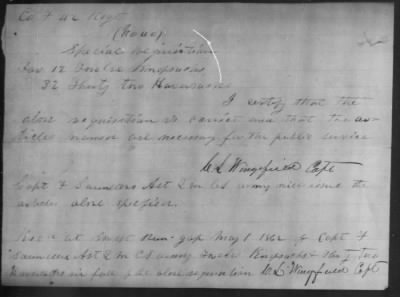 Co F 42 Regt
(No 40)
Special requisition
For 12 Twelve Knapsacks
32 Thirty two Haversacks
I certify that the
above requisition is correct and that the ar-
ticles named are necessary for the public service
W L Wingfield Capt
Capt F Saunders Act Q M CS army will issue the
articles above specified.
at Swift Run-gap May 1 1862 of Capt F
Saunders Act Q M CS army Twelve Knapsacks & thirty two
Haversacks in full of the above requisition W L Wingfield Capt